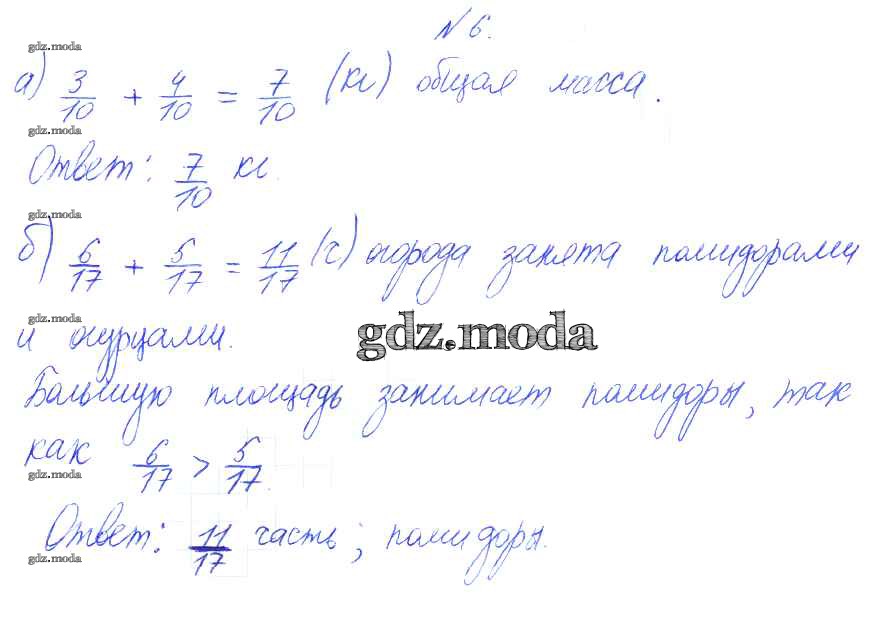 № 6.
gdz.moda
а) 3/10 + 4/10 = 7/10 (кг) общая масса.
gdz.moda
Ответ: 7/10 кг.
gdz.moda
б) 6/17 + 5/17 = 11/17 (ч) огорода занята помидорами
gdz.moda
и огурцами.
gdz.moda
Большую площадь занимает помидоры, так
как 6/17 > 5/17.
gdz.moda
Ответ: 11/17 часть; помидоры.
gdz.moda